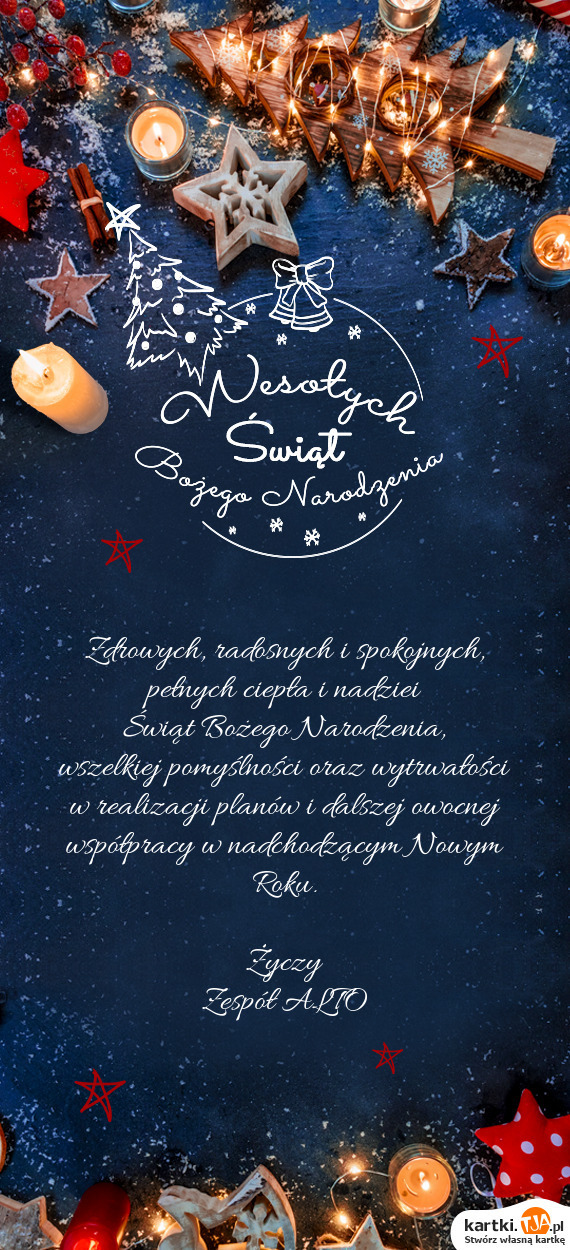 Wesołych
Świąt
Bożego Narodzenia
Zdrowych, radosnych i spokojnych,
pełnych ciepła i nadziei
Świąt Bożego Narodzenia,
wszelkiej pomyślności oraz wytrwałości
w realizacji planów i dalszej owocnej
współpracy w nadchodzącym Nowym
Roku.
Życzy
Zespół ALTO
kartki.TJA.pl
Stwórz własną kartkę